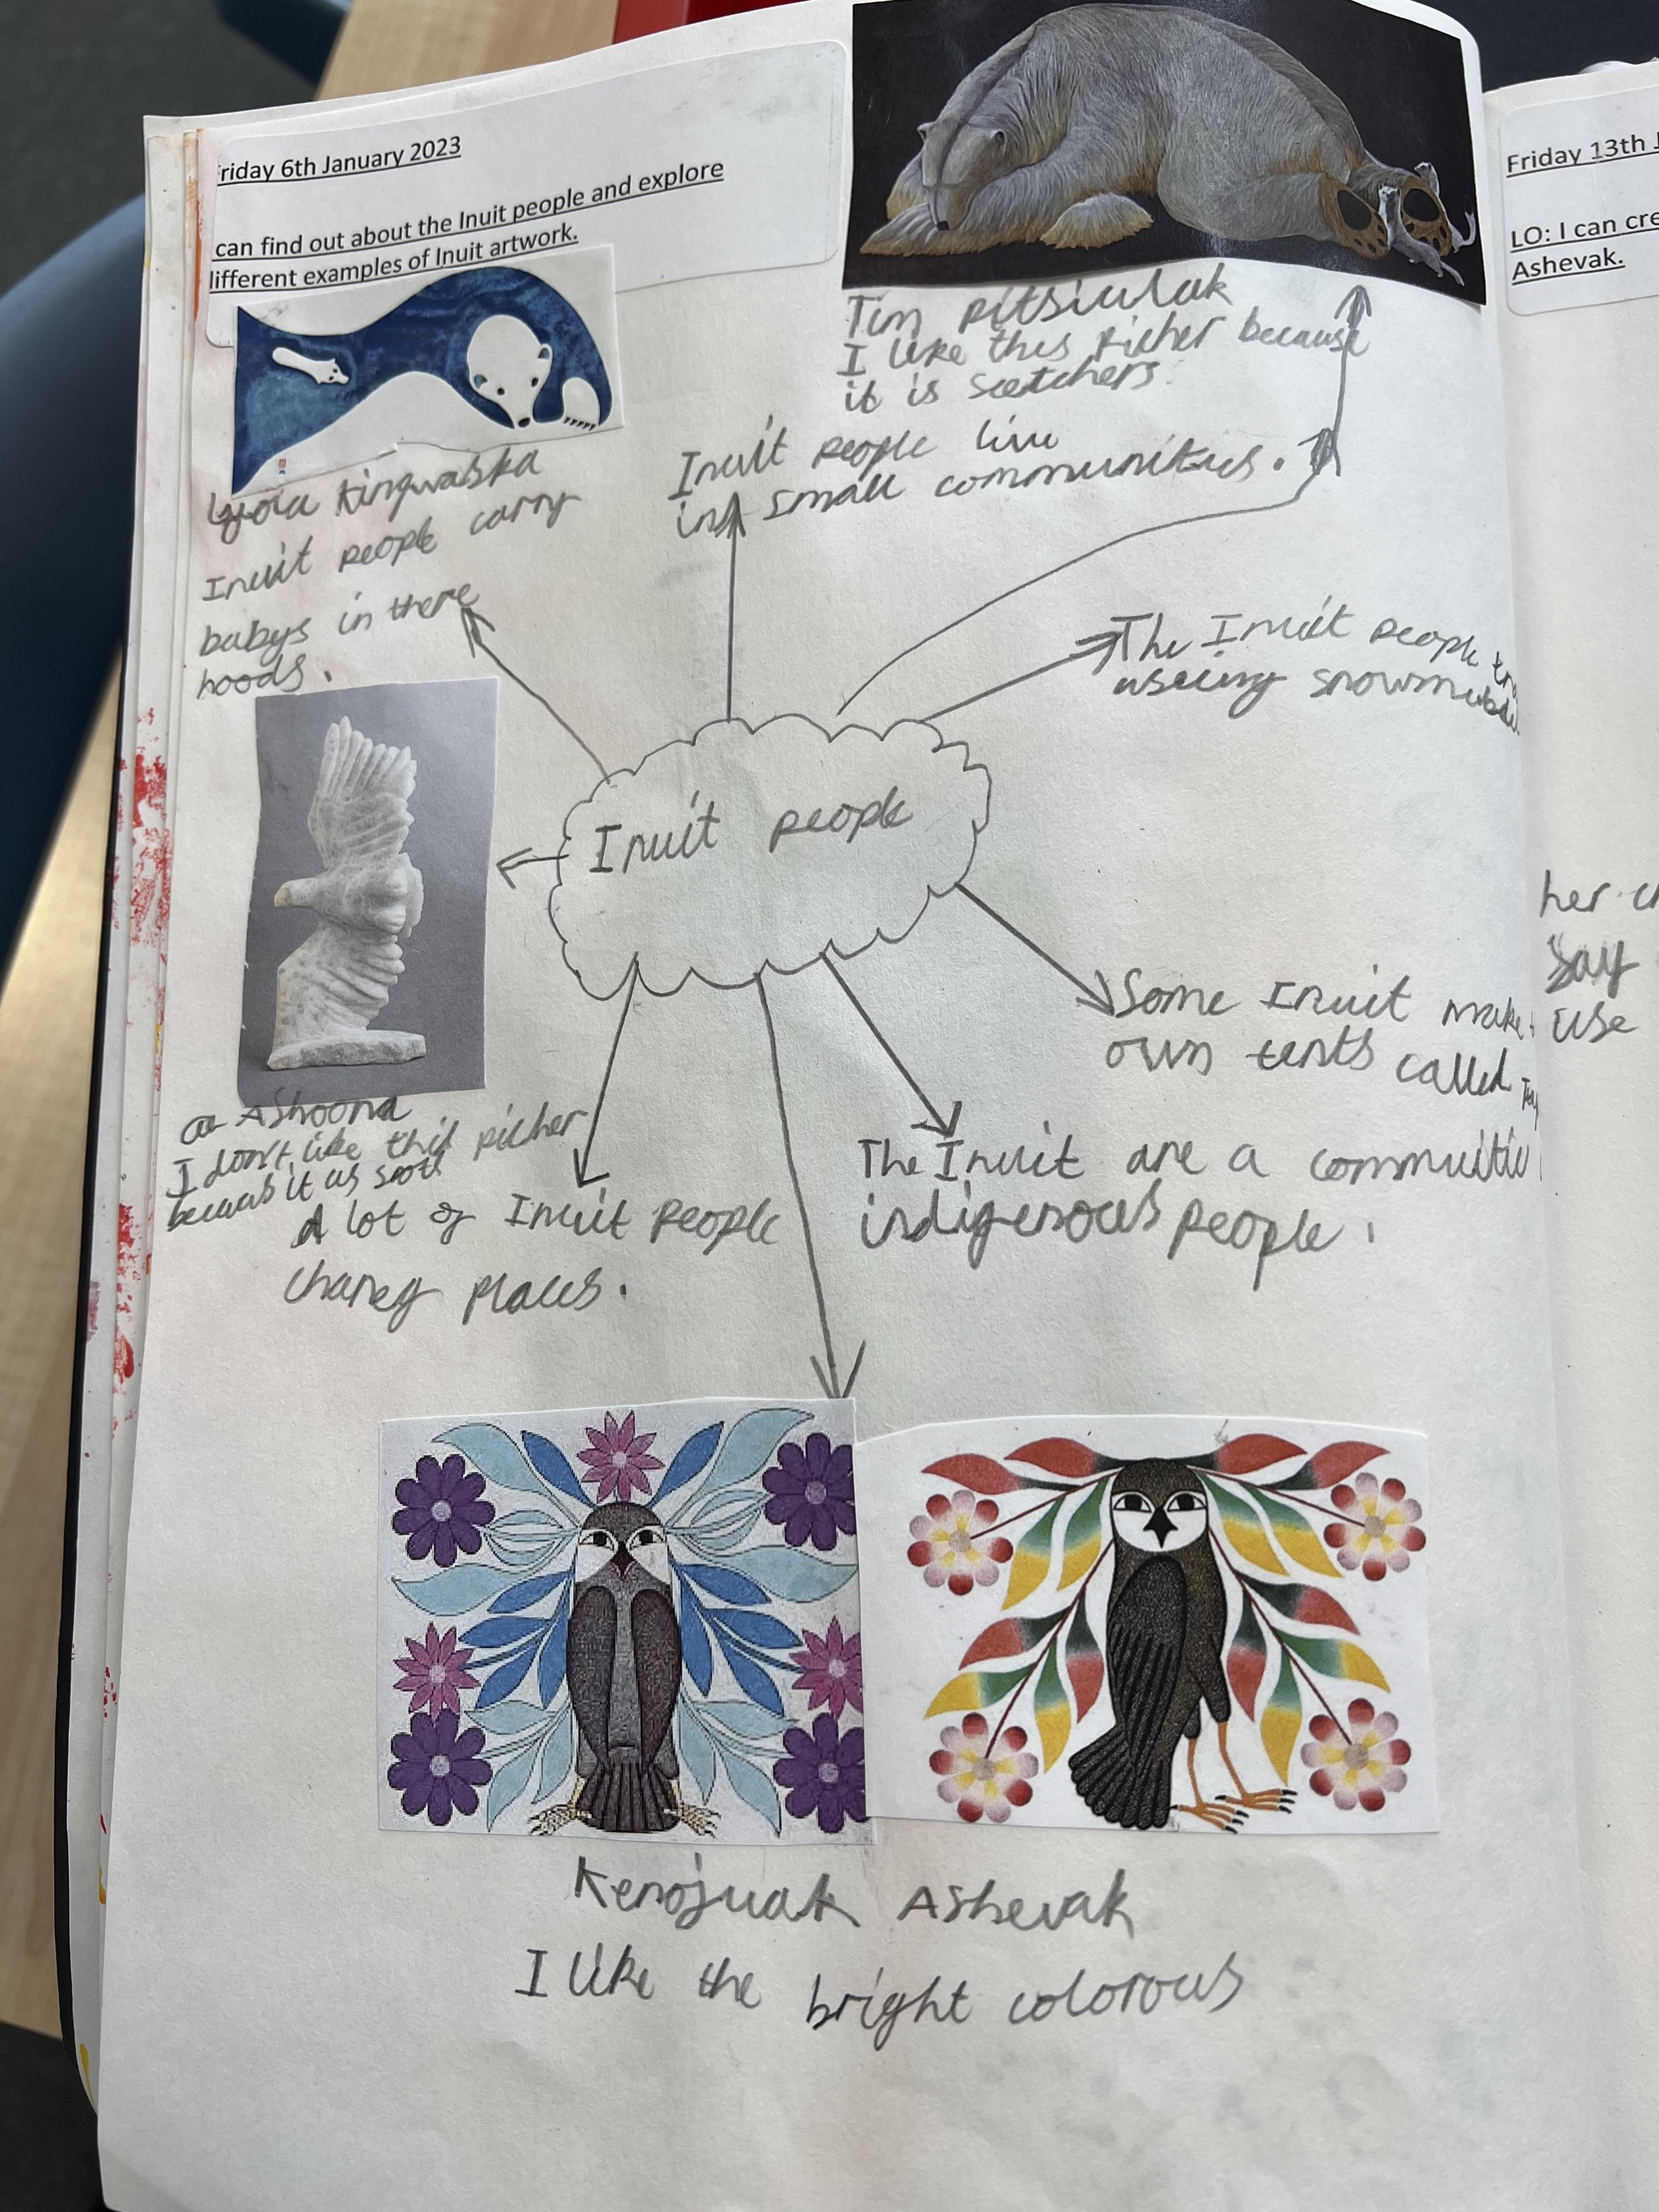 riday 6th January 2023
can find out about the Inuit people and explore
ifferent examples of Inuit artwork.
Tim Pitsiulak
I like this picher because
it is scetchers.
Kingwatska
Inuit people carry
babys in there
hoods.
Inuit people live
in small communities.
The Inuit people
useing
Inuit people
Ashoona
I don't like this picher
becaus it is
A lot of Inuit People
places.
Some Inuit make
own tents called
The Inuit are a
indigenous people.
Kenojuak Ashevak
I like the bright colorous
Friday 13th J
LO: I can cre
Ashevak.
her
say
use